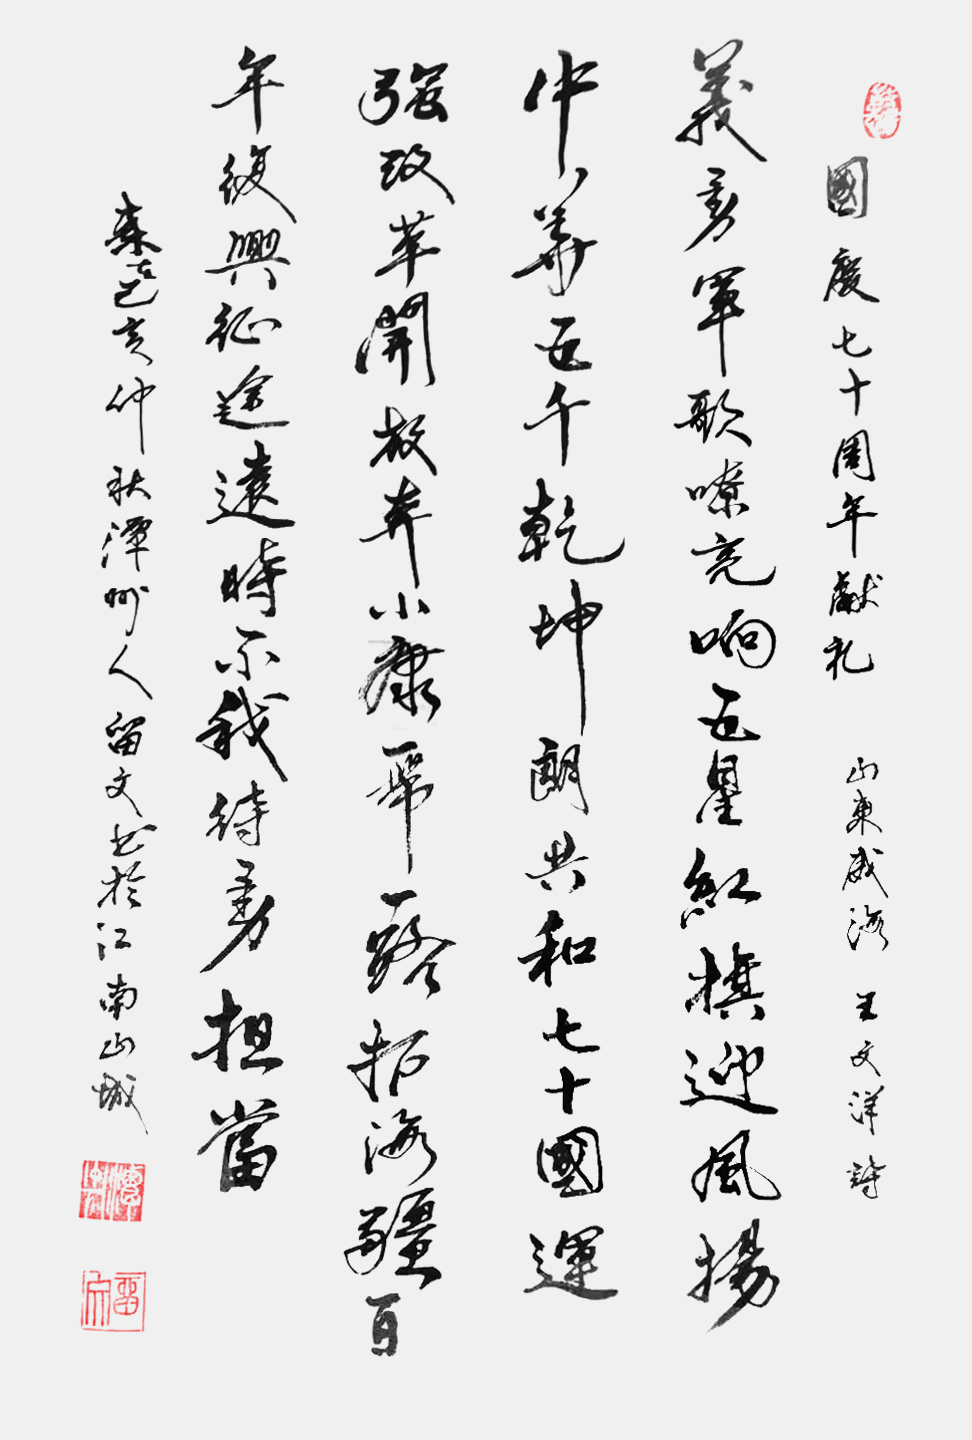 國慶七十周年獻礼 山東威海 王文洋 詩
義勇軍歌嘹亮响五星紅旗迎風揚
中華五千乾坤朗共和七十國運
強改革開放奔小康一帶一路拓海疆百
年復興征途遠時不我待勇担當
歲在己亥仲秋潭州人留文书於江南山城
留文